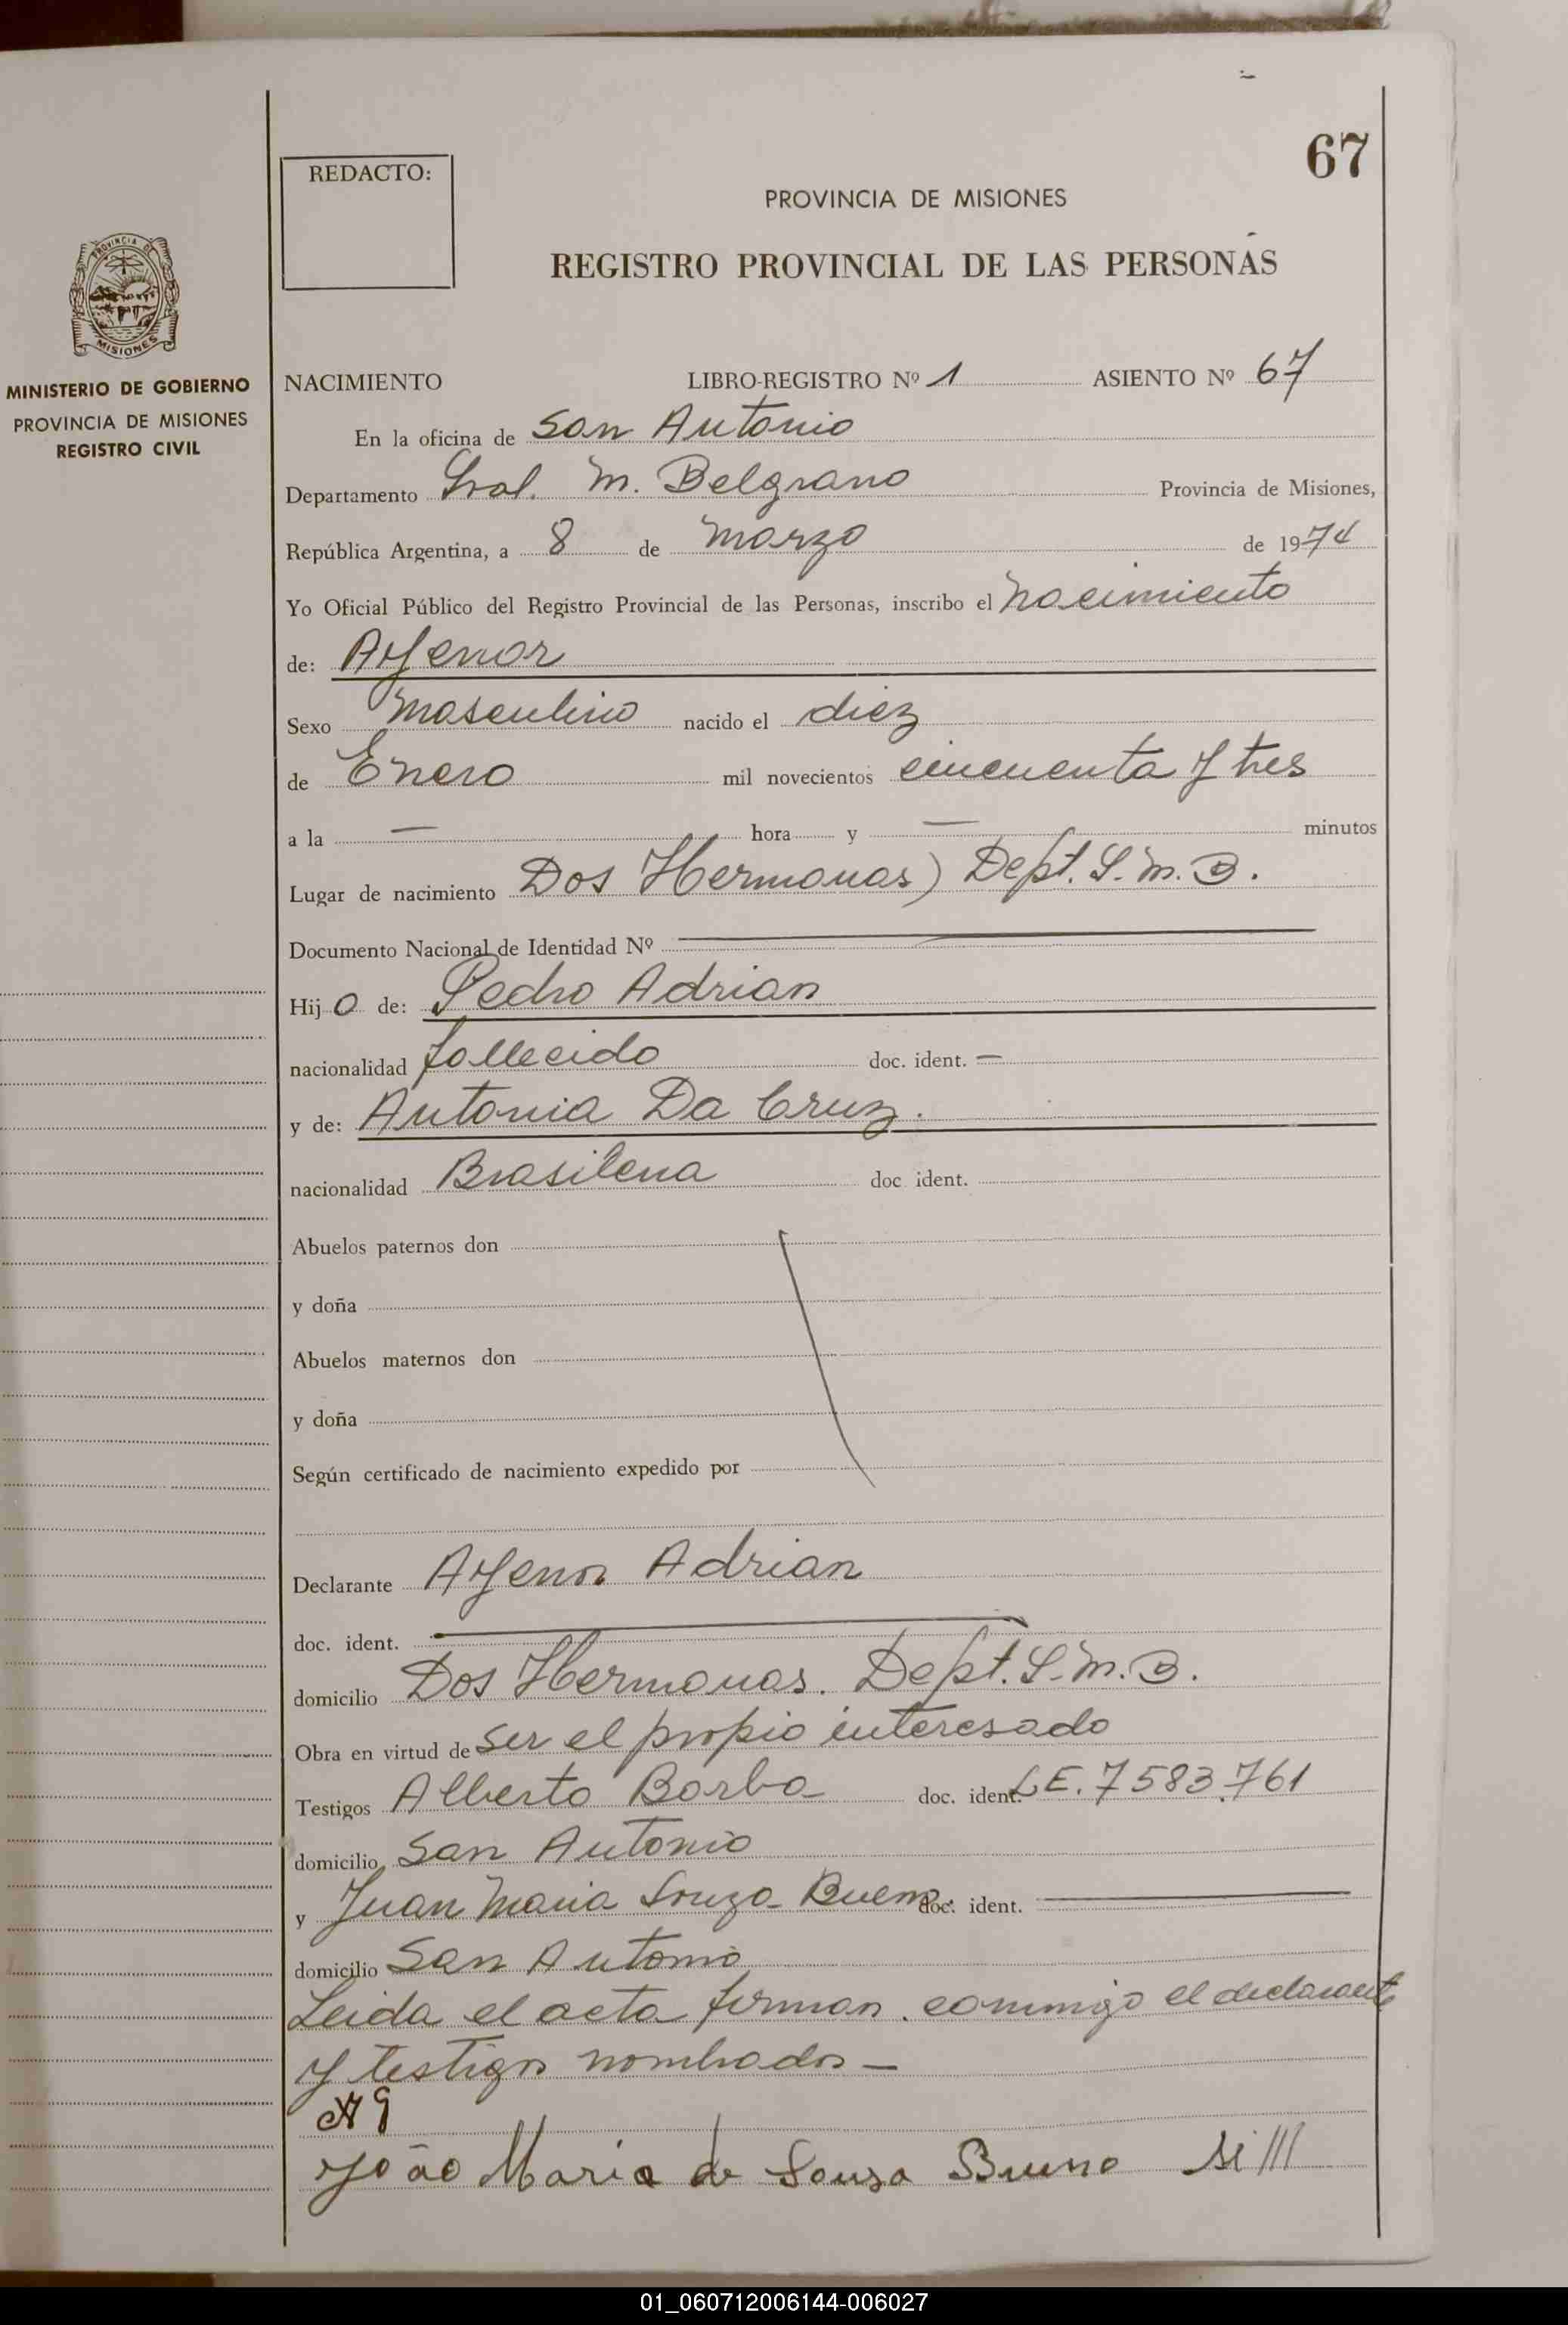 67
REDACTO:
PROVINCIA DE MISIONES
REGISTRO PROVINCIAL DE LAS PERSONAS
PROVINCIA DE
MISIONES
MINISTERIO DE GOBIERNO
PROVINCIA DE MISIONES
REGISTRO CIVIL
NACIMIENTO LIBRO-REGISTRO Nº 1 ASIENTO Nº 67
En la oficina de San Antonio
Departamento Gral. M. Belgrano Provincia de Misiones,
República Argentina, a 8 de Marzo de 1974
Yo Oficial Público del Registro Provincial de las Personas, inscribo el Nacimiento
de: Agenor
Sexo Masculino nacido el diez
de Enero mil novecientos cincuenta y tres
a la — hora y — minutos
Lugar de nacimiento Dos Hermanas) Dept. G. M. B.
Documento Nacional de Identidad Nº
Hijo de: Pedro Adrian
nacionalidad fallecido doc. ident. —
y de: Antonia Da Cruz.
nacionalidad Brasilena doc ident.
Abuelos paternos don
y doña
Abuelos maternos don
y doña
Según certificado de nacimiento expedido por
Declarante Agenor Adrian
doc. ident.
domicilio Dos Hermanas. Dept. G. M. B.
Obra en virtud de ser el propio interesado
Testigos Alberto Borba doc. ident. LE. 7583.761
domicilio San Antonio
y Juan Maria Souza Bueno. doc. ident.
domicilio San Antonio
Leida el acta firman conmigo el declarante
y testigos nombrados —
João Maria de Sousa Bueno
01_060712006144-006027